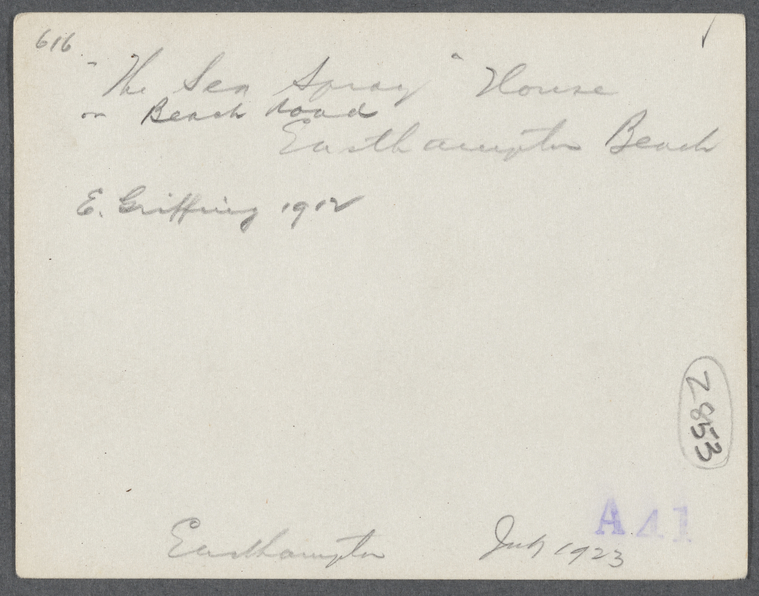 616
"The Sea Spray" House
on Beach Road
Easthampton Beach
E. Griffing 1912
2853
A41
Easthampton July 1923